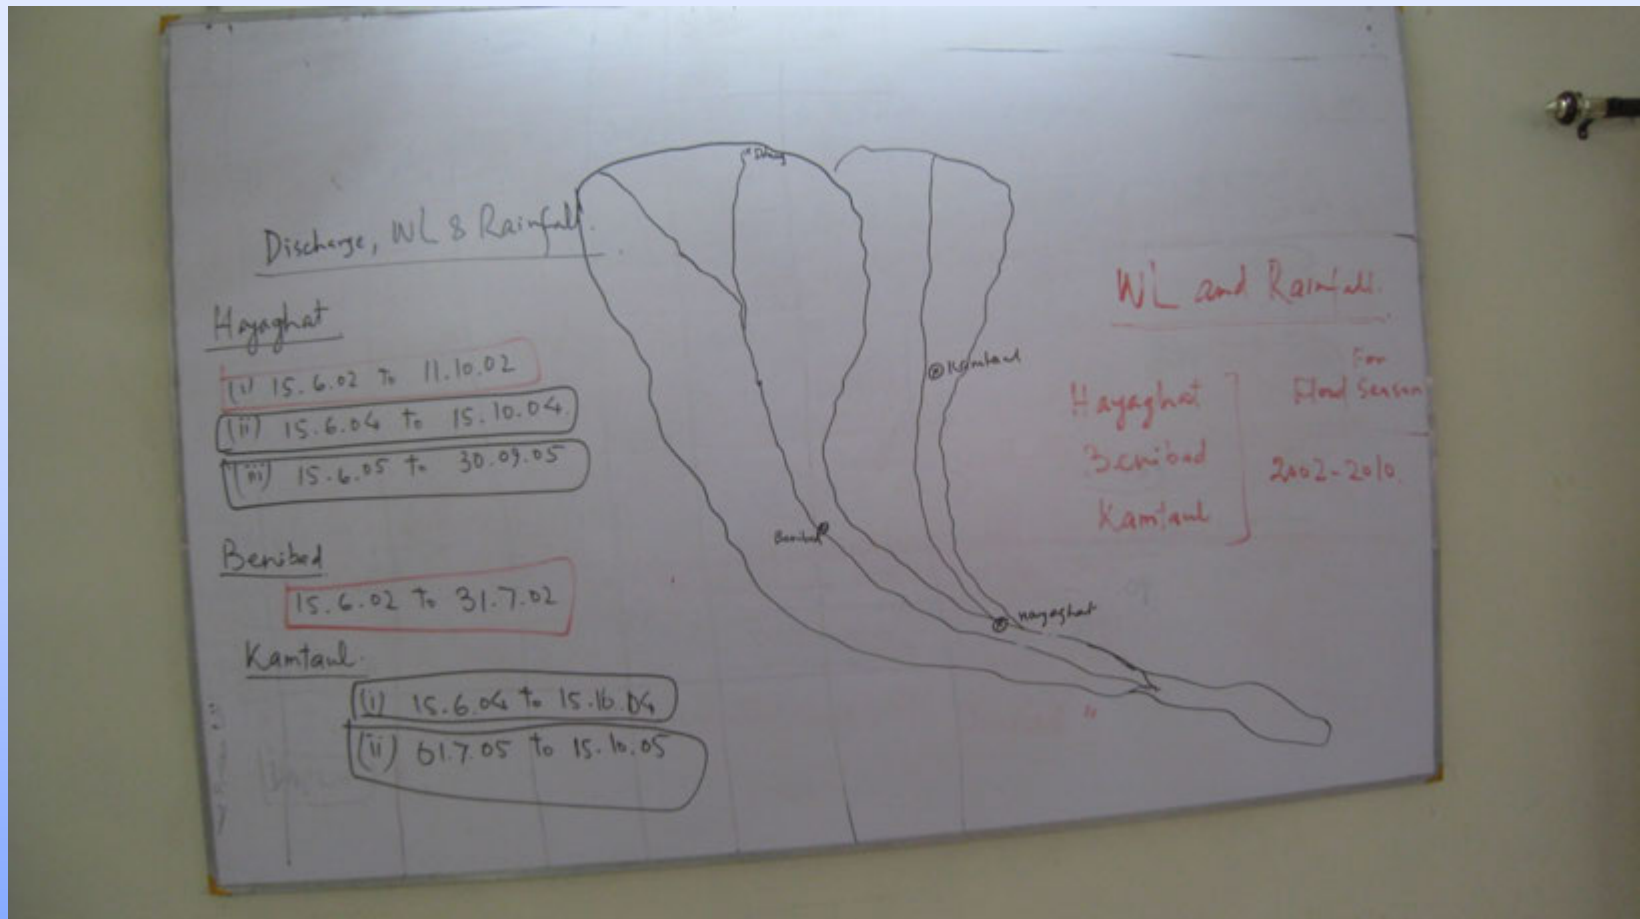 Discharge, WL & Rainfall.
Hayaghat
(i) 15.6.02 To 11.10.02
(ii) 15.6.04 to 15.10.04.
(iii) 15.6.05 to 30.09.05
Benibad
15.6.02 to 31.7.02
Kamtaul.
(i) 15.6.04 to 15.10.04
(ii) 01.7.05 to 15.10.05
Kamtaul
Benibad
Hayaghat
WL and Rainfall.
Hayaghat
Benibad
Kamtaul
For
Flood Season
2002-2010.